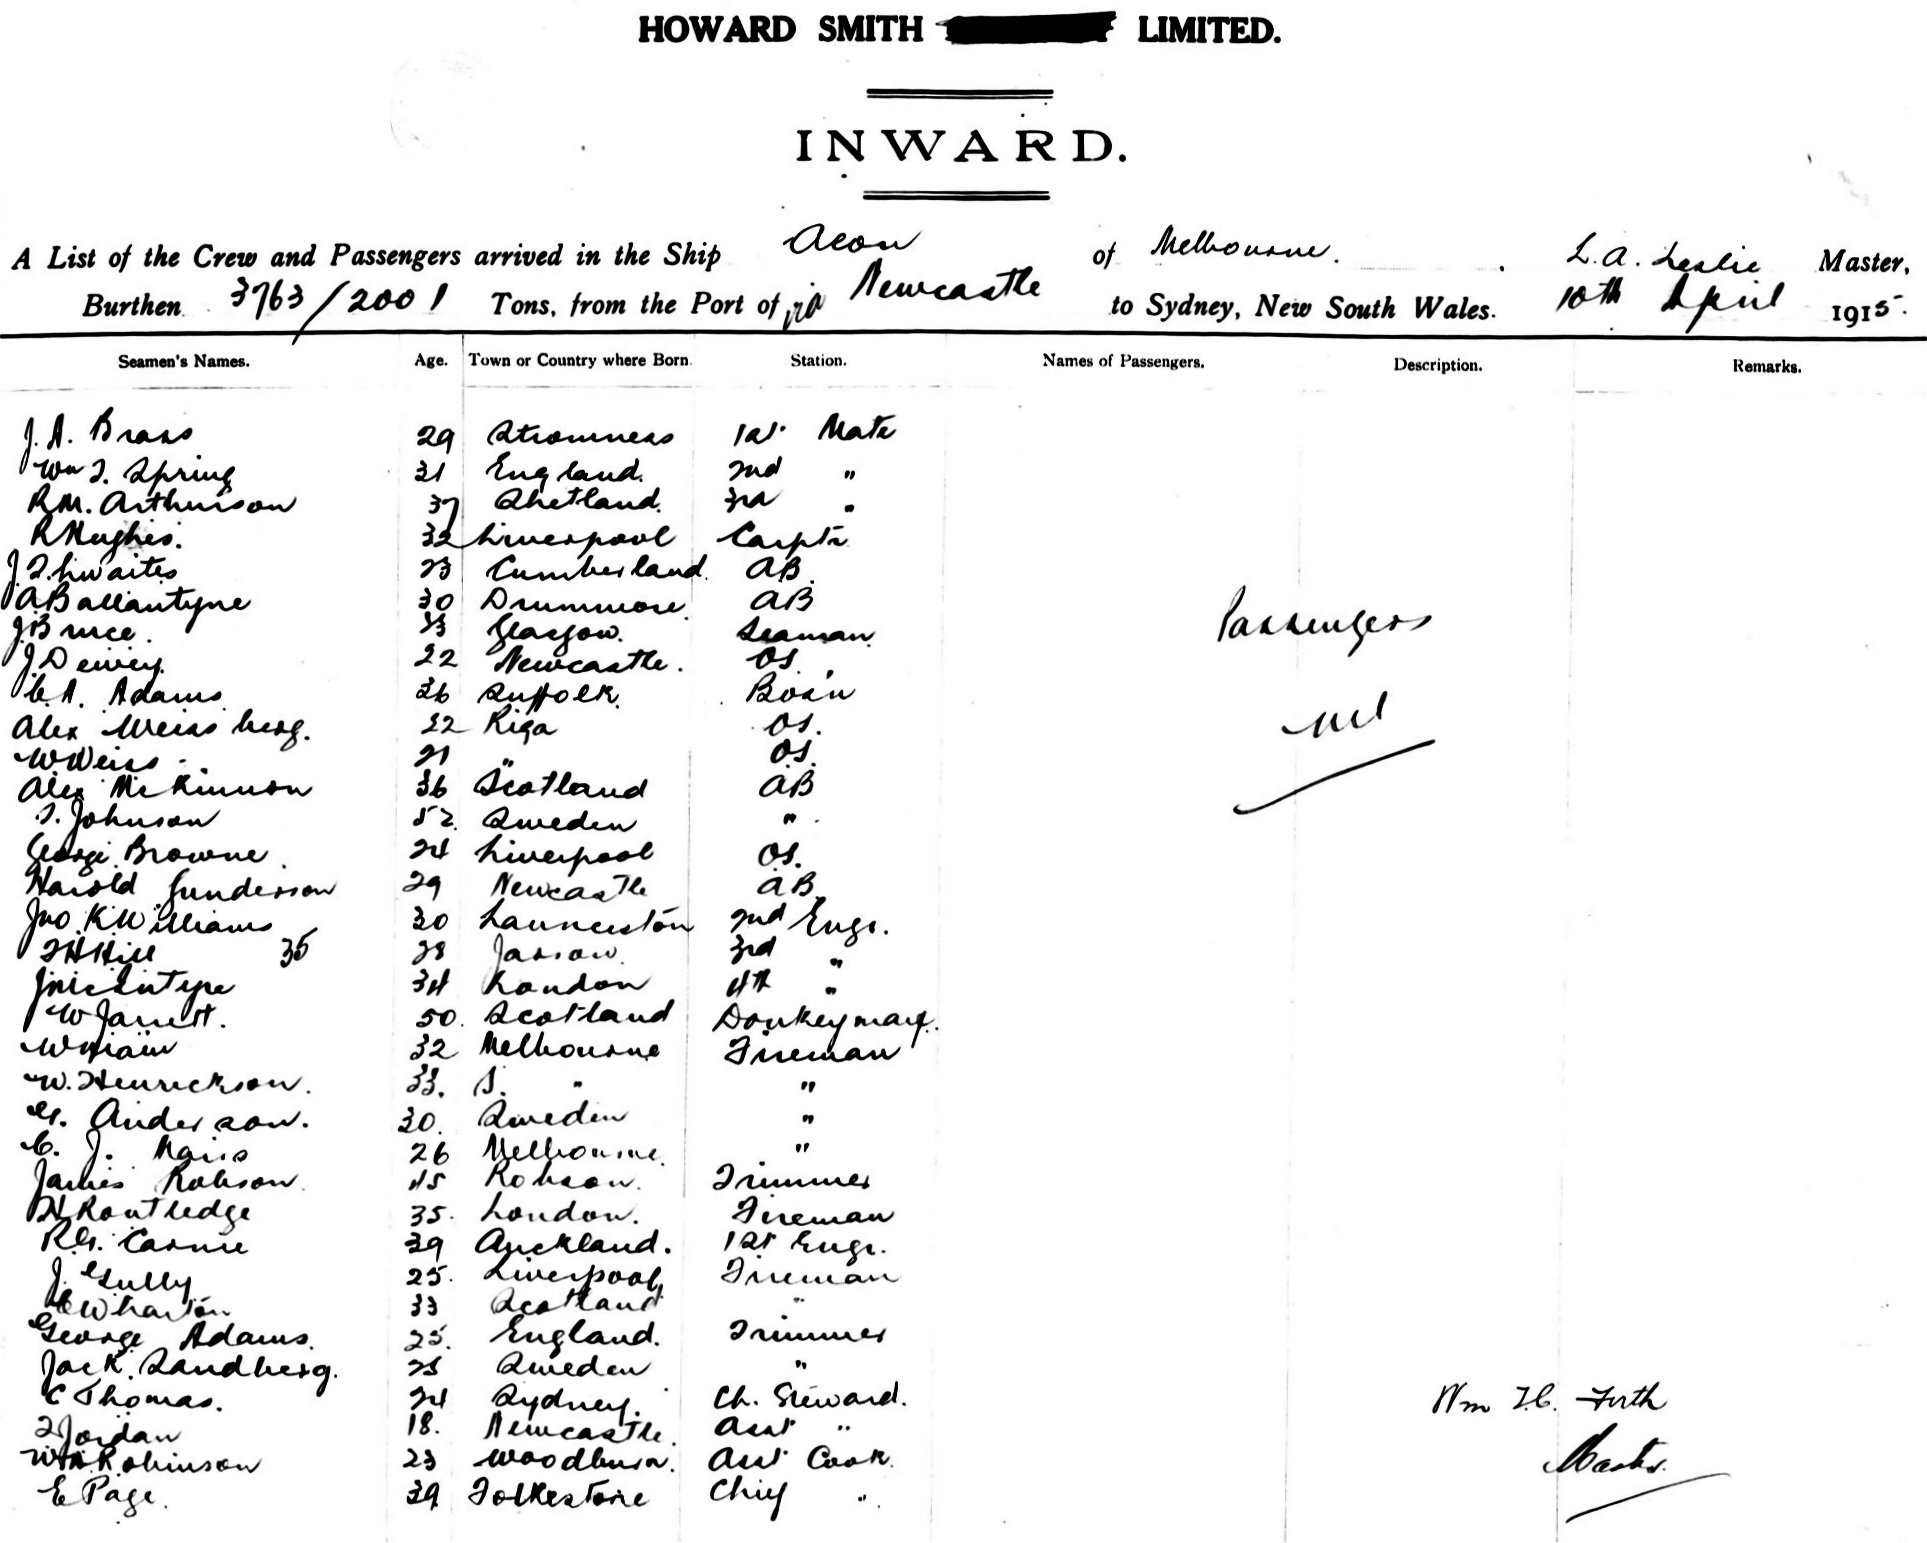 HOWARD SMITH LIMITED.
INWARD.
A List of the Crew and Passengers arrived in the Ship Aeon of Melbourne. L. A. Leslie Master,
Burthen 3763/2001 Tons, from the Port of Newcastle to Sydney, New South Wales. 10th April 1915.
Seamen's Names. Age. Town or Country where Born. Station. Names of Passengers. Description. Remarks.
J. A. Brass 29 Stromness 1st Mate
Wm T. Spring 31 England. 2nd "
R M. Arthurson 37 Shetland. 3rd "
R Hughes. 32 Liverpool Carptr
J Thwaites 23 Cumberland. AB.
A Ballantyne 30 Drummore. AB
J Bruce. 33 Glasgow. Seaman
J Dewey. 22 Newcastle. OS.
C. A. Adams 26 Suffolk. Bos'n
Alex Weissberg. 22 Riga OS.
W Weiss 21 " OS.
Alex McKinnon 36 Scotland AB
T. Johnson 52. Sweden "
George Browne 24 Liverpool OS.
Harold Gunderson 29 Newcastle AB
Jno. K Williams 30 Launceston 2nd Engr.
T H Hill 35 28 Jarrow. 3rd "
J McIntyre 34 London 4th "
W Jarrett. 50. Scotland Donkeyman.
W 32 Melbourne Fireman
W. Henrickson. 33. S. " "
G. Anderson. 30. Sweden "
C. J. Mairs 26 Melbourne. "
James Robson. 45 Robson. Trimmer
H Routledge 35. London. Fireman
R. G. Carnie 39 Auckland. 1st Engr.
J. Gully 25. Liverpool Fireman
E Wharton 33 Scotland "
George Adams. 25. England. Trimmer
Jack Sandberg. 25 Sweden "
C Thomas. 24 Sydney. Ch. Steward.
T Jordan 18. Newcastle. Asst "
Wm Robinson 23 Woodburn. Asst Cook.
E Page. 39 Folkestone Chief "
Passengers
nil
Wm T. C. Forth
Master.